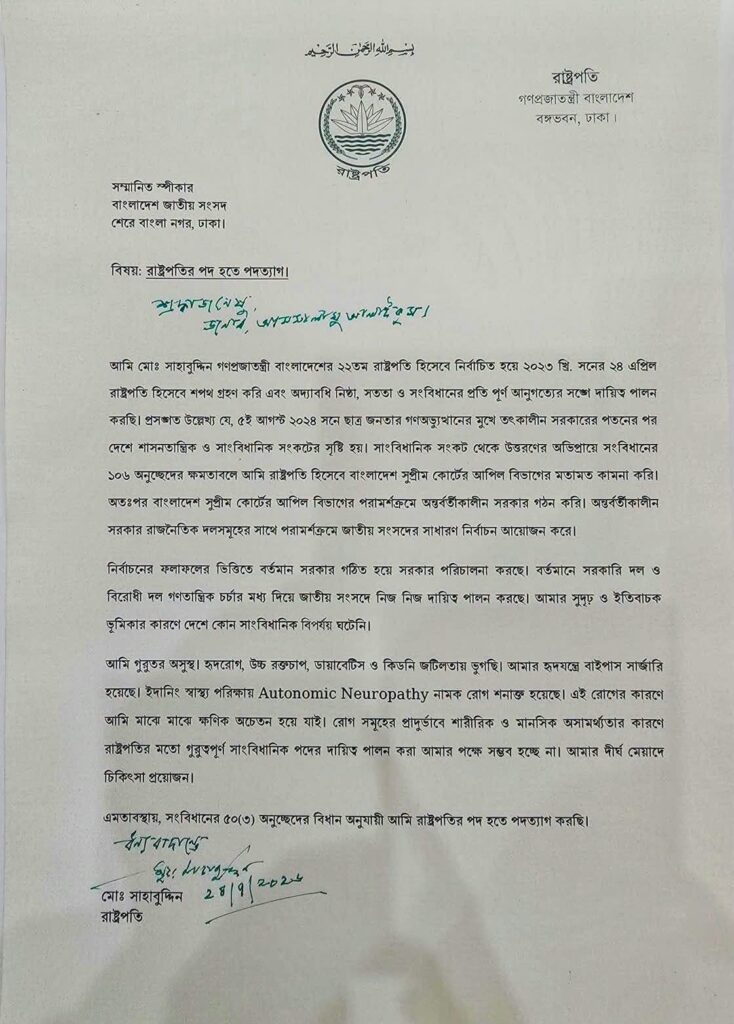 بسم الله الرحمن الرحيم
রাষ্ট্রপতি
গণপ্রজাতন্ত্রী বাংলাদেশ
বঙ্গভবন, ঢাকা।
রাষ্ট্রপতি
সম্মানিত স্পীকার
বাংলাদেশ জাতীয় সংসদ
শেরে বাংলা নগর, ঢাকা।
বিষয়: রাষ্ট্রপতির পদ হতে পদত্যাগ।
শ্রদ্ধাভাজনেষু,
জনাব, আসসালামু আলাইকুম।
আমি মোঃ সাহাবুদ্দিন গণপ্রজাতন্ত্রী বাংলাদেশের ২২তম রাষ্ট্রপতি হিসেবে নির্বাচিত হয়ে ২০২৩ খ্রি. সনের ২৪ এপ্রিল
রাষ্ট্রপতি হিসেবে শপথ গ্রহণ করি এবং অদ্যাবধি নিষ্ঠা, সততা ও সংবিধানের প্রতি পূর্ণ আনুগত্যের সঙ্গে দায়িত্ব পালন
করছি। প্রসঙ্গত উল্লেখ্য যে, ৫ই আগস্ট ২০২৪ সনে ছাত্র জনতার গণঅভ্যুত্থানের মুখে তৎকালীন সরকারের পতনের পর
দেশে শাসনতান্ত্রিক ও সাংবিধানিক সংকটের সৃষ্টি হয়। সাংবিধানিক সংকট থেকে উত্তরণের অভিপ্রায়ে সংবিধানের
১০৬ অনুচ্ছেদের ক্ষমতাবলে আমি রাষ্ট্রপতি হিসেবে বাংলাদেশ সুপ্রীম কোর্টের আপিল বিভাগের মতামত কামনা করি।
অতঃপর বাংলাদেশ সুপ্রীম কোর্টের আপিল বিভাগের পরামর্শক্রমে অন্তর্বর্তীকালীন সরকার গঠন করি। অন্তর্বর্তীকালীন
সরকার রাজনৈতিক দলসমূহের সাথে পরামর্শক্রমে জাতীয় সংসদের সাধারণ নির্বাচন আয়োজন করে।
নির্বাচনের ফলাফলের ভিত্তিতে বর্তমান সরকার গঠিত হয়ে সরকার পরিচালনা করছে। বর্তমানে সরকারি দল ও
বিরোধী দল গণতান্ত্রিক চর্চার মধ্য দিয়ে জাতীয় সংসদে নিজ নিজ দায়িত্ব পালন করছে। আমার সুদৃঢ় ও ইতিবাচক
ভূমিকার কারণে দেশে কোন সাংবিধানিক বিপর্যয় ঘটেনি।
আমি গুরুতর অসুস্থ। হৃদরোগ, উচ্চ রক্তচাপ, ডায়াবেটিস ও কিডনি জটিলতায় ভুগছি। আমার হৃদযন্ত্রে বাইপাস সার্জারি
হয়েছে। ইদানিং স্বাস্থ্য পরিক্ষায় Autonomic Neuropathy নামক রোগ শনাক্ত হয়েছে। এই রোগের কারণে
আমি মাঝে মাঝে ক্ষণিক অচেতন হয়ে যাই। রোগ সমূহের প্রাদুর্ভাবে শারীরিক ও মানসিক অসামর্থ্যতার কারণে
রাষ্ট্রপতির মতো গুরুত্বপূর্ণ সাংবিধানিক পদের দায়িত্ব পালন করা আমার পক্ষে সম্ভব হচ্ছে না। আমার দীর্ঘ মেয়াদে
চিকিৎসা প্রয়োজন।
এমতাবস্থায়, সংবিধানের ৫০(৩) অনুচ্ছেদের বিধান অনুযায়ী আমি রাষ্ট্রপতির পদ হতে পদত্যাগ করছি।
ধন্যবাদান্তে
মোঃ সাহাবুদ্দিন
রাষ্ট্রপতি